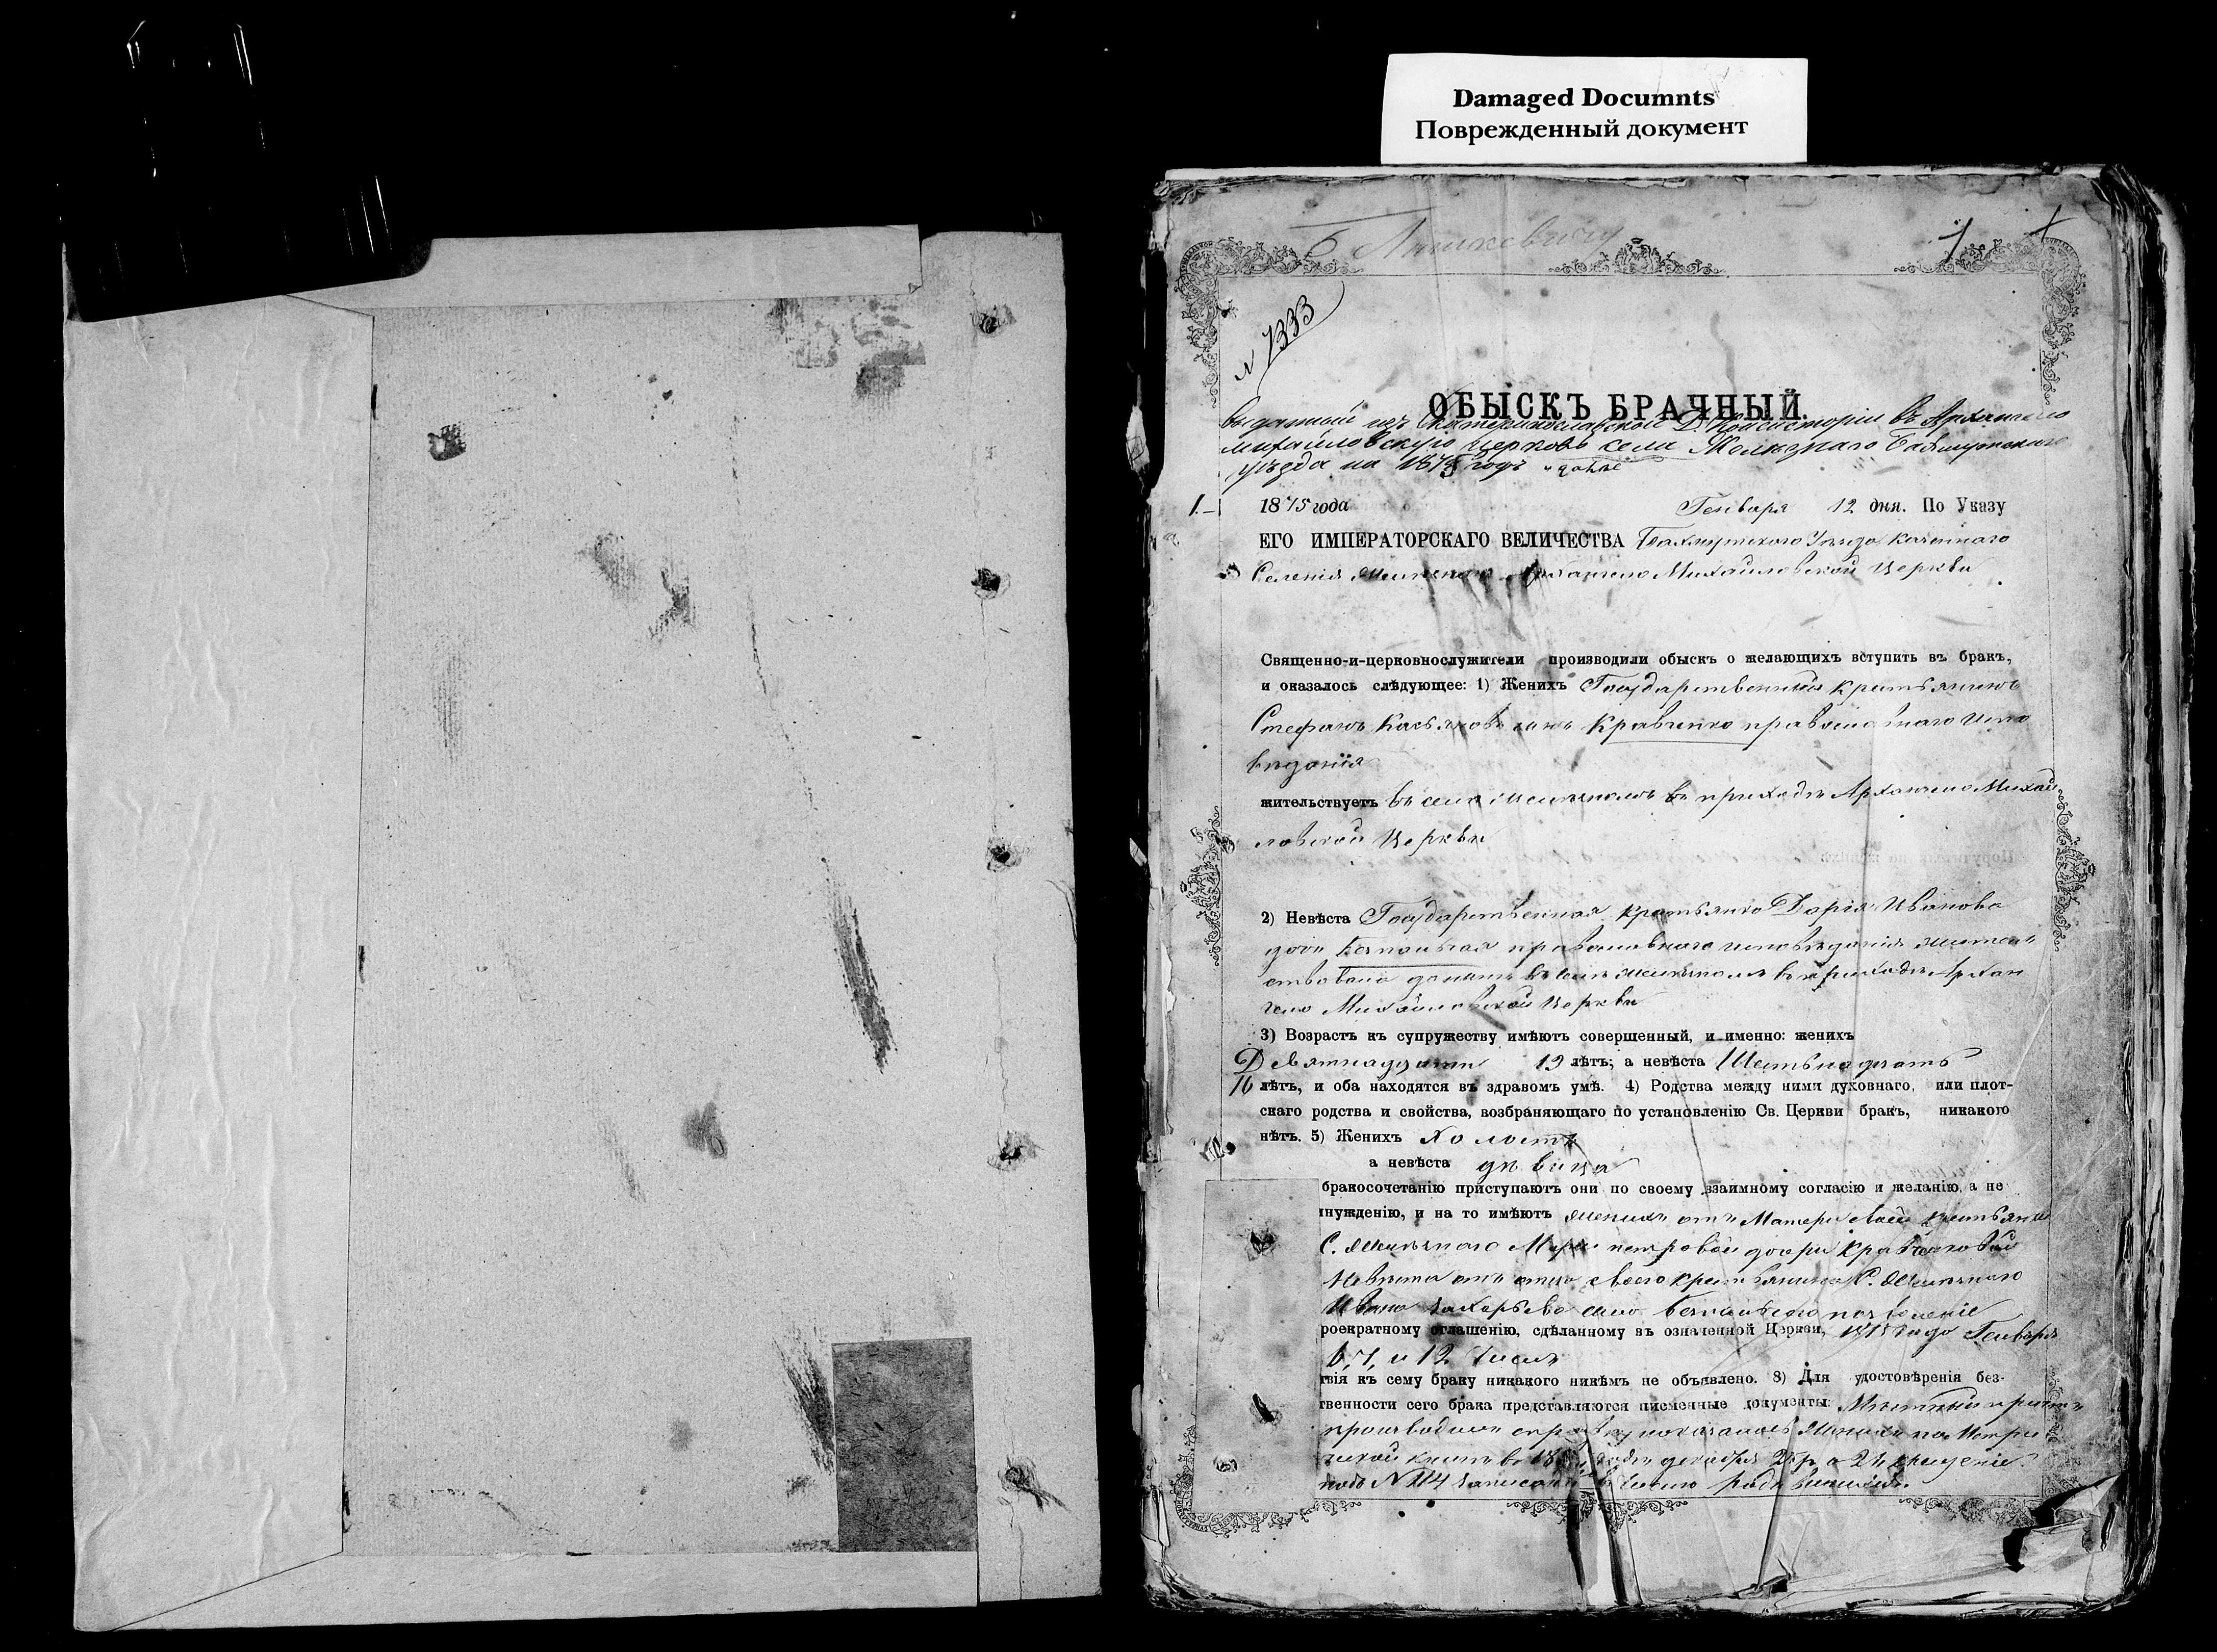 Damaged Documnts
Поврежденный документ
1
№ 1333
ОБЫСКЪ БРАЧНЫЙ.
выданный изъ Екатеринославской Д. Консисторіи въ Архангело
михайловскую церковь села Желѣзнаго Бахмутскаго
уѣзда на 1875 годъ и далѣе
1. 1875 года Генваря 12 дня. По Указу
ЕГО ИМПЕРАТОРСКАГО ВЕЛИЧЕСТВА Бахмутского Уѣзда казенного
Селенія Желѣзного Архангело Михайловской Церкви
Священно-и-церковнослужители производили обыскъ о желающихъ вступить въ бракъ,
и оказалось слѣдующее: 1) Женихъ Государственный крестьянинъ
Стефанъ Касьяновъ сынъ Кравченко православного испо
вѣданія
жительствуетъ въ селѣ Желѣзномъ въ приходѣ Архангело Михай
ловской Церкви
2) Невѣста Государственная крестьянка Дарія Иванова
дочь православного исповѣданія жител
ствовала донынѣ въ селѣ Желѣзномъ въ приходѣ Архан
гело Михайловской Церкви
3) Возрастъ къ супружеству имѣютъ совершенный, и именно: женихъ
Девятнадцати 19 лѣтъ; а невѣста Шестьнадцать
16 лѣтъ, и оба находятся въ здравомъ умѣ. 4) Родства между ними духовнаго, или плот-
скаго родства и свойства, возбраняющаго по установленію Св. Церкви бракъ, никакого
нѣтъ. 5) Женихъ холостъ
а невѣста дѣвица
бракосочетанію приступаютъ они по своему взаимному согласію и желанію, а не
нужденію, и на то имѣютъ женихъ отъ Матери своей крестьянки
С. Желѣзного Маріи петровой дочери Кравченковой
Невѣста отъ отца своего крестьянина С. Желѣзного
Ивана Захарьева сына позволеніе
роекратному оглашенію, сдѣланному въ означенной Церкви, 1875 года Генваря
6, 7, и 12 Числъ
твія къ сему браку никакого никѣмъ не объявлено. 8) Для удостовѣренія без-
твенности сего брака представляются писменные документы: Мѣстный
производилъ справку женихъ по Метри
ческой книгѣ декабря крещеніе
подъ № 114 записанъ родившимся.